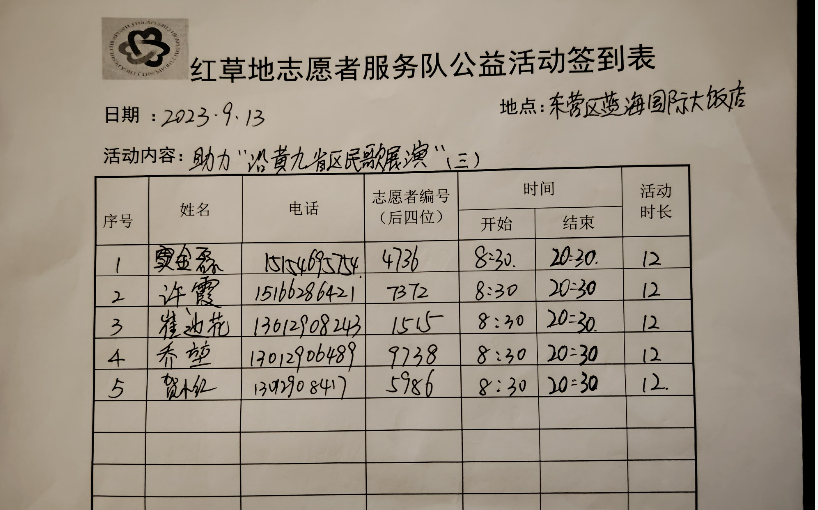 红草地志愿者服务队公益活动签到表
日期：2023.9.13
地点：东营区蓝海国际大饭店
活动内容：助力"沿黄九省区民歌展演"（三）
序号 姓名 电话 志愿者编号（后四位） 时间 开始 结束 活动时长
1 窦金磊 15154695754 4736 8:30 20:30 12
2 许霞 15166286421 7372 8:30 20:30 12
3 崔迎花 13012908243 1515 8:30 20:30 12
4 乔堃 13012906489 9738 8:30 20:30 12
5 13012908417 5986 8:30 20:30 12